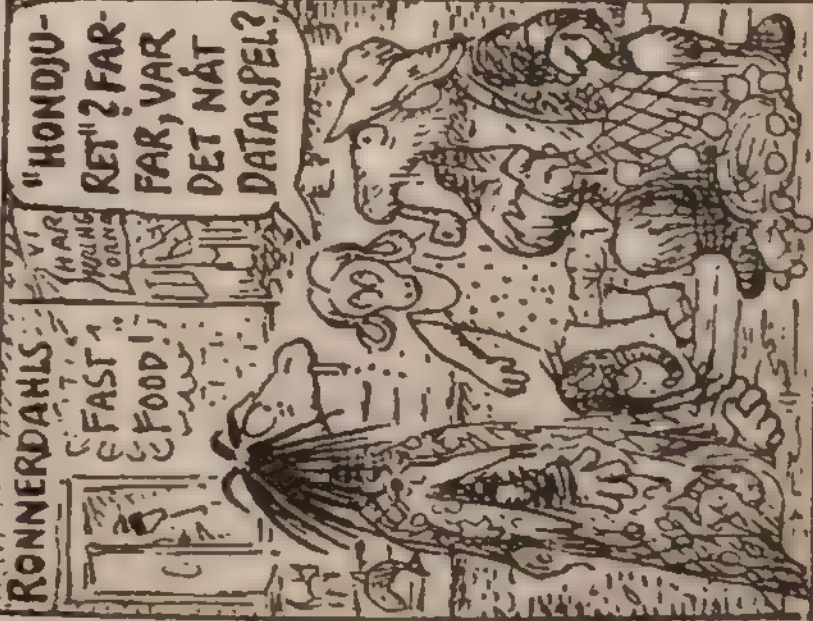 RONNERDAHLS
FAST
FOOD!
VI
HAR
"HONDJU-
RET"? FAR-
FAR, VAR
DET NÅT
DATASPEL?